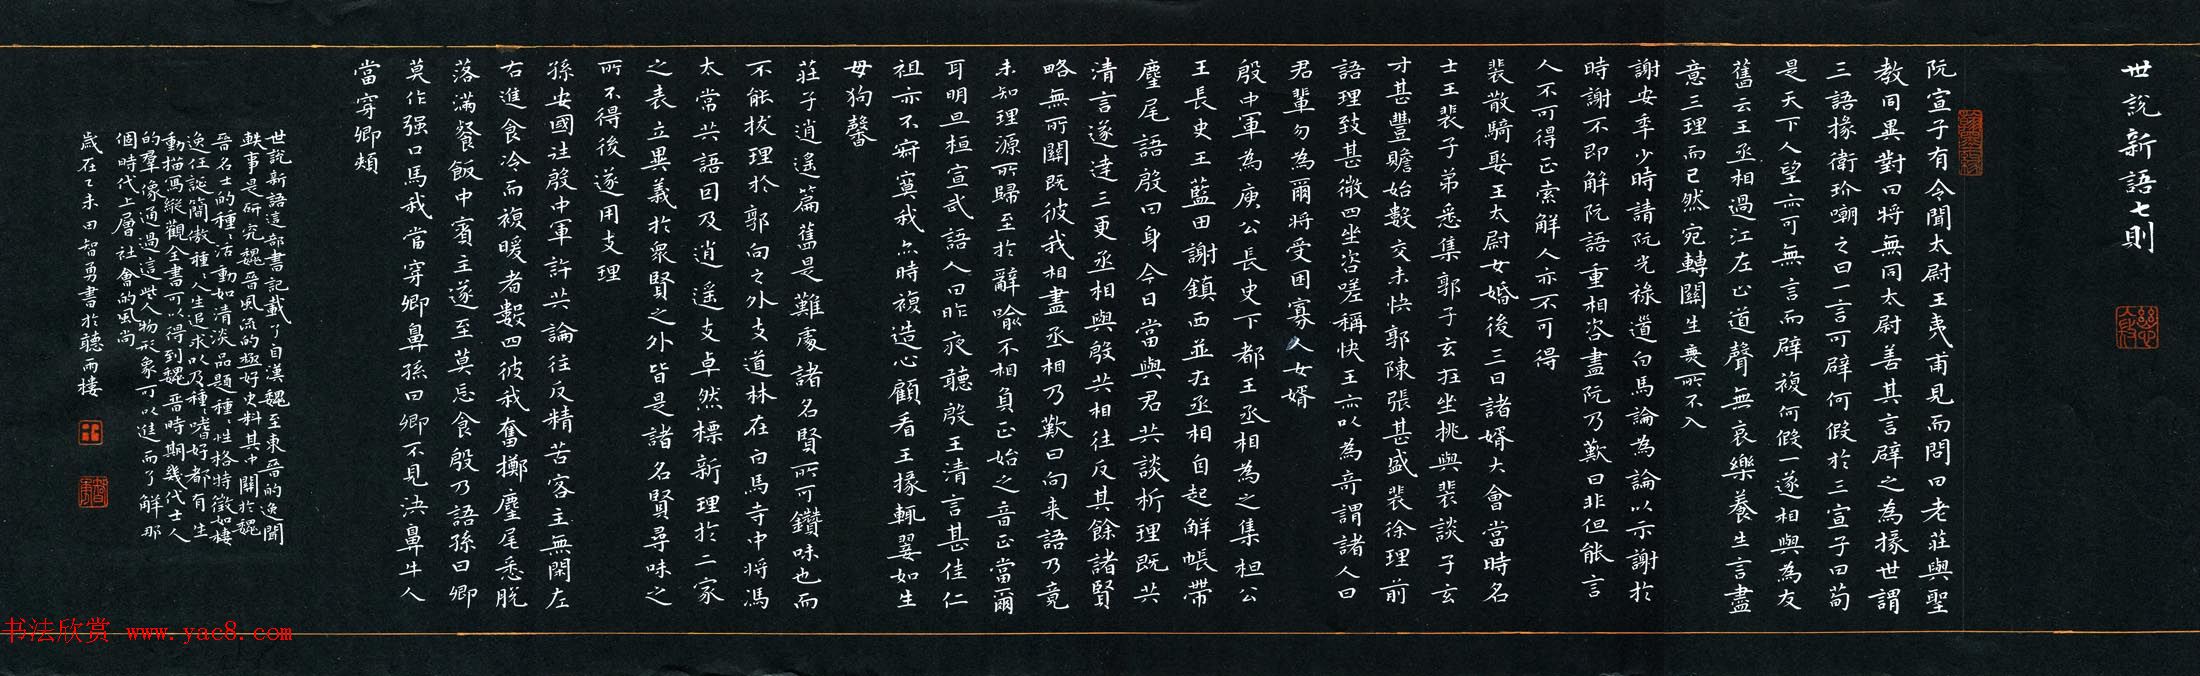 世說新語七則
阮宣子有令聞太尉王夷甫見而問曰老莊與聖
教同異對曰將無同太尉善其言辟之為掾世謂
三語掾衛玠嘲之曰一言可辟何假於三宣子曰苟
是天下人望亦可無言而辟複何假一遂相與為友
舊云王丞相過江左止道聲無哀樂養生言盡
意三理而已然宛轉關生無所不入
謝安年少時請阮光祿道白馬論為論以示謝於
時謝不即解阮語重相咨盡阮乃歎曰非但能言
人不可得正索解人亦不可得
裴散騎娶王太尉女婚後三日諸婿大會當時名
士王裴子弟悉集郭子玄在坐挑與裴談子玄
才甚豐贍始數交未快郭陳張甚盛裴徐理前
語理致甚微四坐咨嗟稱快王亦以為奇謂諸人曰
君輩勿為爾將受困寡人女婿
殷中軍為庾公長史下都王丞相為之集桓公
王長史王藍田謝鎮西並在丞相自起解帳帶
麈尾語殷曰身今日當與君共談析理既共
清言遂達三更丞相與殷共相往反其餘諸賢
略無所關既彼我相盡丞相乃歎曰向來語乃竟
未知理源所歸至於辭喻不相負正始之音正當爾
耳明旦桓宣武語人曰昨夜聽殷王清言甚佳仁
祖亦不寂寞我亦時複造心顧看王掾輒翣如生
母狗馨
莊子逍遙篇舊是難處諸名賢所可鑽味也而
不能拔理於郭向之外支道林在白馬寺中將馮
太常共語因及逍遙支卓然標新理於二家
之表立異義於眾賢之外皆是諸名賢尋味之
所不得後遂用支理
孫安國注殷中軍許共論往反精苦客主無閑左
右進食冷而複暖者數四彼我奮擲麈尾悉脫
落滿餐飯中賓主遂至莫忘食殷乃語孫曰卿
莫作強口馬我當穿卿鼻孫曰卿不見決鼻牛人
當穿卿頰
世說新語這部書記載了自漢魏至東晉的逸聞
軼事是研究魏晉風流的極好史料其中關於魏
晉名士的種種活動如清淡品題種種性格特徵如棲
逸任誕簡傲種種人生追求以乃種種嗜好都有生
動描寫縱觀全書可以得到魏晉時期幾代士人
的羣像通過這些人物形象可以進而了解那
個時代上層社會的風尚
歲在乙未田智勇書於聽雨樓
书法欣赏 www.yac8.com